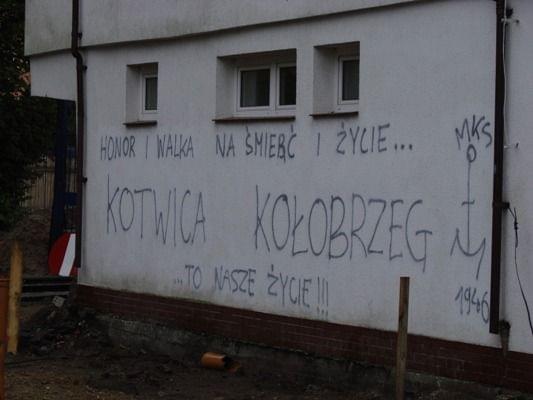 HONOR I WALKA NA ŚMIERĆ I ŻYCIE...
KOTWICA KOŁOBRZEG
...TO NASZE ŻYCIE!!!
MKS
1946